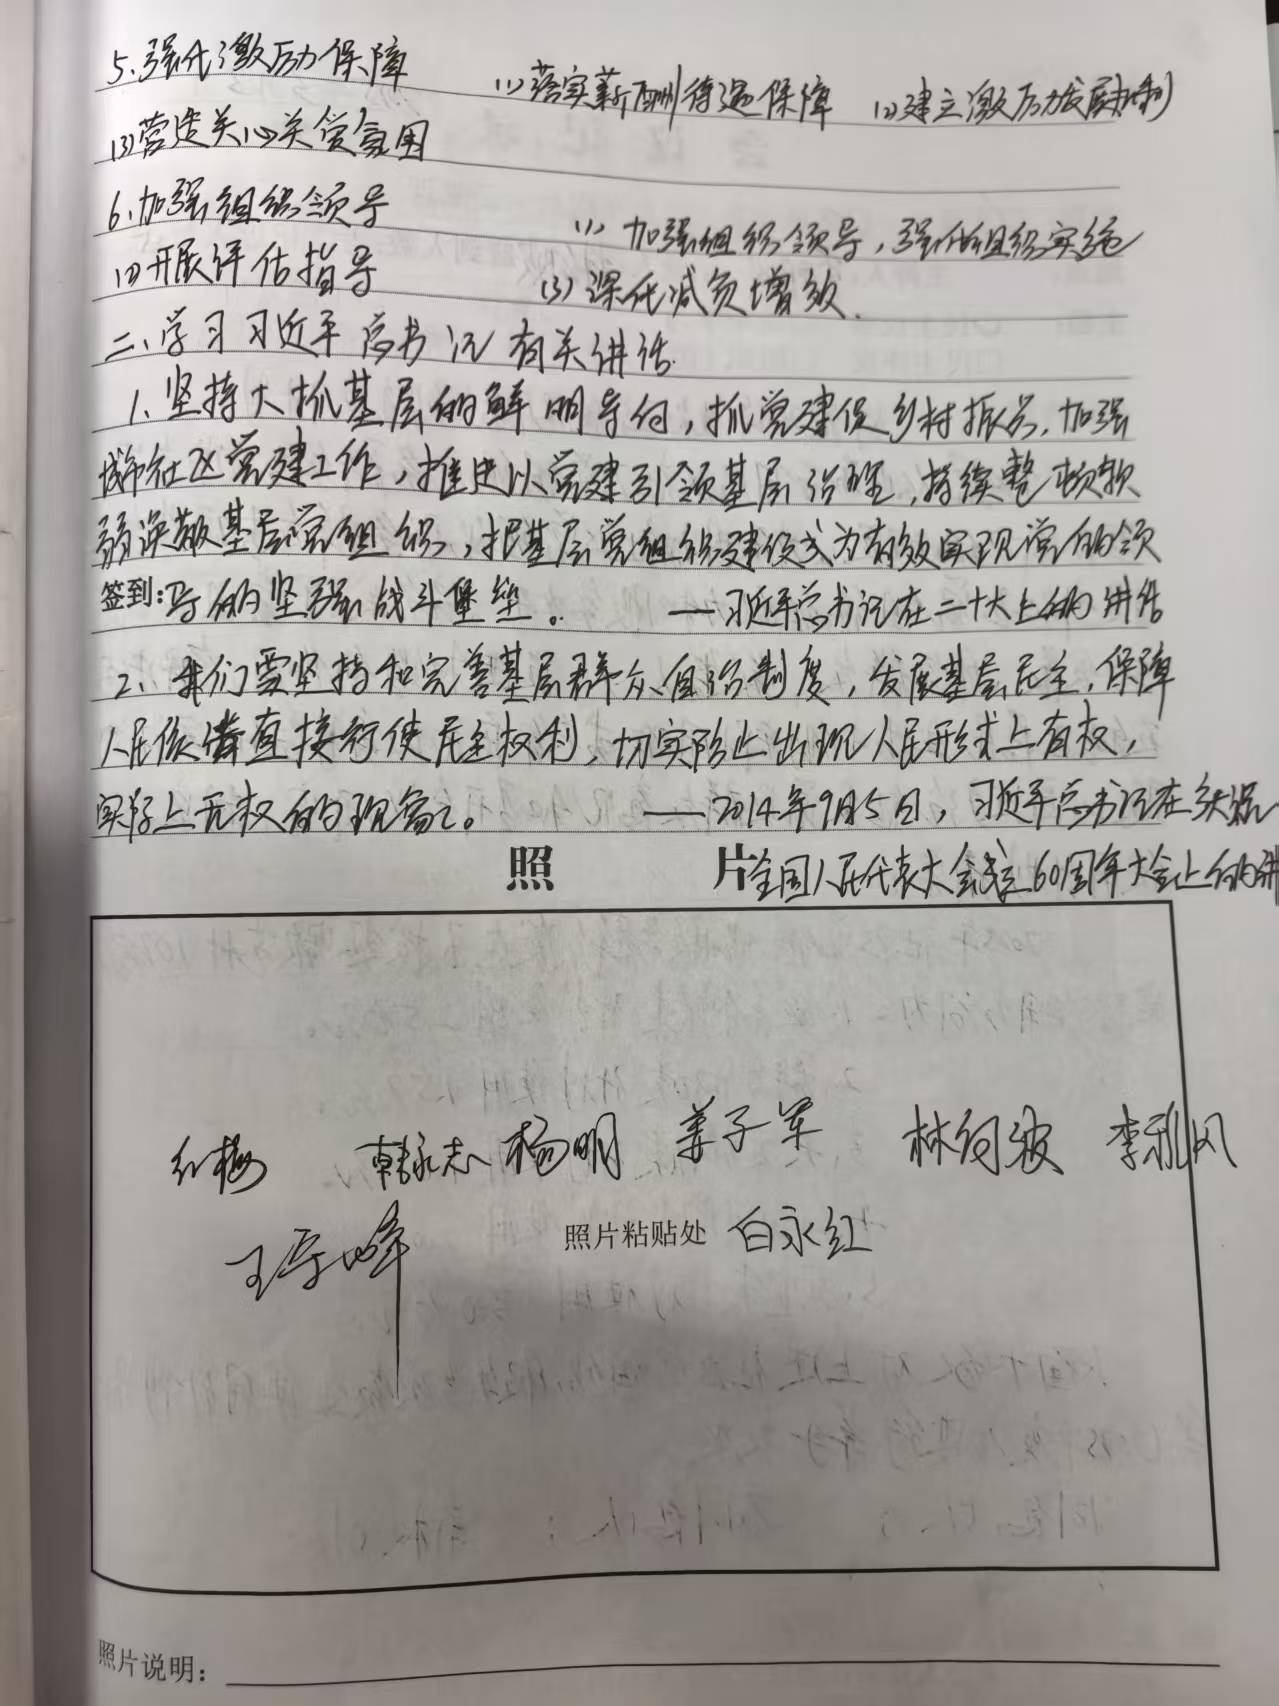 5、强化激励保障 (1)落实薪酬待遇保障 (2)建立激励发展机制
(3)营造关心关爱氛围
6、加强组织领导 (1)、加强组织领导，强化组织实施
(2)开展评估指导 (3)深化减负增效.
二、学习习近平总书记有关讲话.
1、坚持大抓基层的鲜明导向，抓党建促乡村振兴，加强
城市社区党建工作，推进以党建引领基层治理，持续整顿软
弱涣散基层党组织，把基层党组织建设成为有效实现党的领
签到: 导的坚强战斗堡垒。 ——习近平总书记在二十大上的讲话
2、我们要坚持和完善基层群众自治制度，发展基层民主，保障
人民依法直接行使民主权利，切实防止出现人民形式上有权，
实际上无权的现象。 ——2014年9月5日，习近平总书记在庆祝
照 片 全国人民代表大会成立60周年大会上的讲
红梅 韩永志 杨明 姜子军 林向波 李秋风
照片粘贴处 白永红
照片说明: